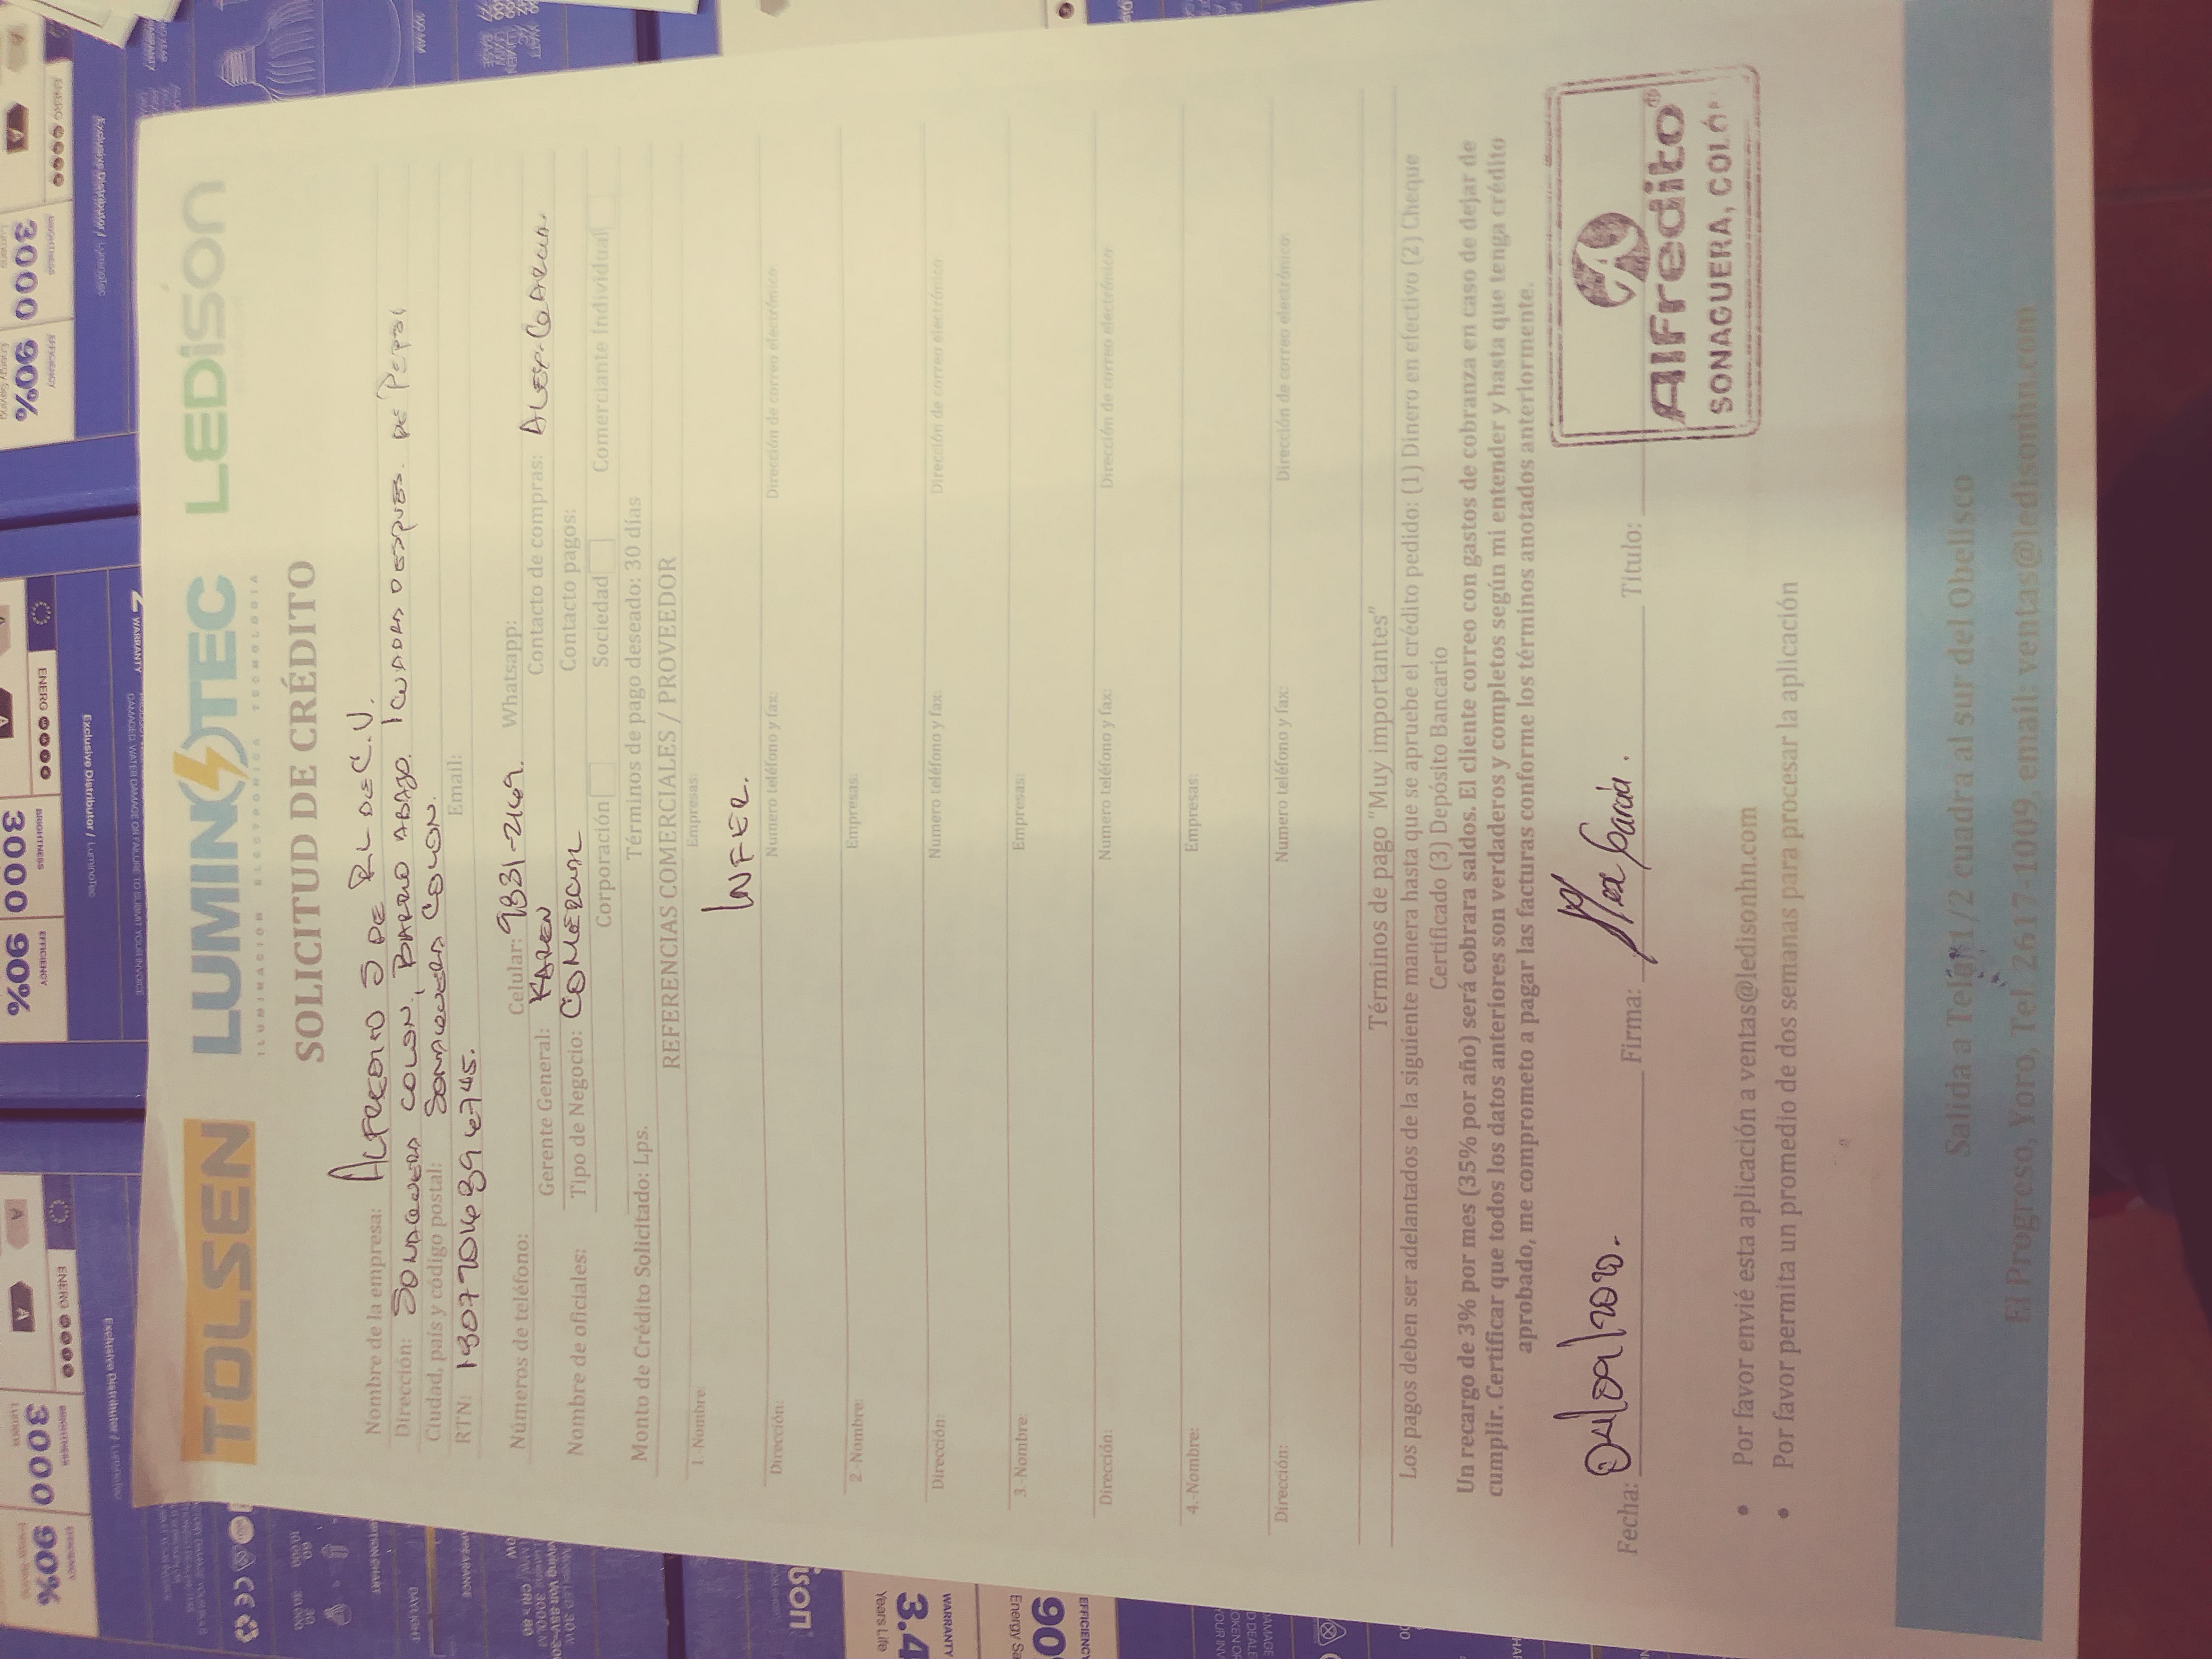 TOLSEN LUMINOTEC LEDISON
ILUMINACION ELECTRONICA TECNOLOGIA
SOLICITUD DE CRÉDITO
Nombre de la empresa: ALFREDITO S DE RL DE C.V.
Dirección: SONAGUERA COLON, BARRIO ABAJO. 1 CUADRA DESPUES. DE PEPSI
Ciudad, país y código postal: SONAGUERA COLON.
RTN: Email:
Números de teléfono: Celular: 9331-2169. Whatsapp:
Gerente General: KAREN Contacto de compras: ALEX GARCIA.
Nombre de oficiales: Tipo de Negocio: COMERCIAL Contacto pagos:
Corporación Sociedad Comerciante Individual
Monto de Crédito Solicitado: Lps. Términos de pago deseado: 30 días
REFERENCIAS COMERCIALES / PROVEEDOR
1.-Nombre: Empresas:
INFER.
Dirección: Numero teléfono y fax: Dirección de correo electrónico:
2.-Nombre: Empresas:
Dirección: Numero teléfono y fax: Dirección de correo electrónico:
3.-Nombre: Empresas:
Dirección: Numero teléfono y fax: Dirección de correo electrónico:
4.-Nombre: Empresas:
Dirección: Numero teléfono y fax: Dirección de correo electrónico:
Términos de pago "Muy importantes"
Los pagos deben ser adelantados de la siguiente manera hasta que se apruebe el crédito pedido: (1) Dinero en efectivo (2) Cheque
Certificado (3) Depósito Bancario
Un recargo de 3% por mes (35% por año) será cobrara saldos. El cliente correo con gastos de cobranza en caso de dejar de
cumplir. Certificar que todos los datos anteriores son verdaderos y completos según mi entender y hasta que tenga crédito
aprobado, me comprometo a pagar las facturas conforme los términos anotados anteriormente.
Fecha: 04/09/2020. Firma: Alex Garcia. Titulo:
Alfredito®
SONAGUERA, COLÓN
• Por favor envié esta aplicación a ventas@ledisonhn.com
• Por favor permita un promedio de dos semanas para procesar la aplicación
Salida a Tela, 1/2 cuadra al sur del Obelisco
El Progreso, Yoro, Tel. 2617-1009, email: ventas@ledisonhn.com